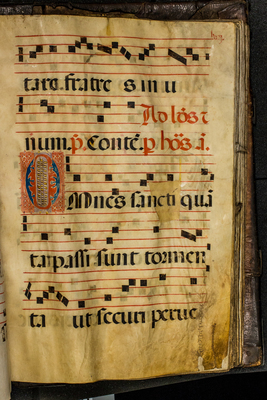 tare. fratres in u
Ad lōs t
num. p̄. Conte. p hōs. ā.
Omnes sancti quā
ta passi sunt tormen
ta ut securi perue